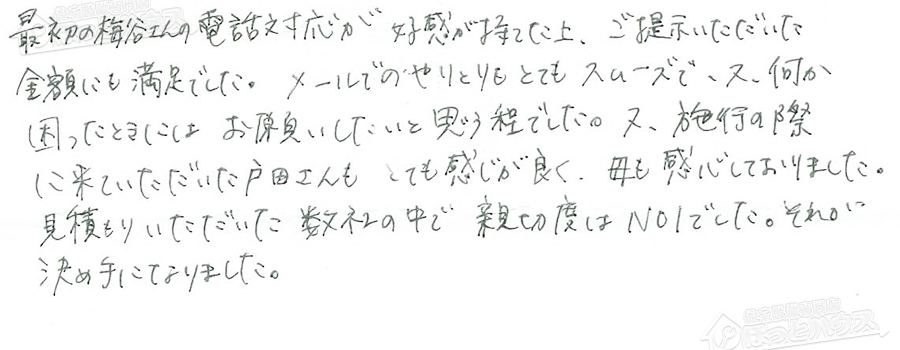 最初の梅谷さんの電話対応が好感が持てた上、ご提示いただいた
金額にも満足でした。メールでのやりとりもとてもスムーズで、又、何か
困ったときにはお願いしたいと思う程でした。又、施行の際
に来ていただいた戸田さんもとても感じが良く、母も感心しておりました。
見積もりいただいた数社の中で親切度はNO1でした。それが
決め手になりました。
住宅設備専門店
ほっとハウス